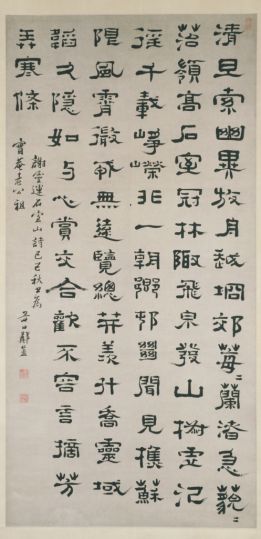 清旦索幽異放舟越坰郊莓〻蘭渚急藐〻
苔嶺高石室冠林陬飛泉發山椒虛泛
徑千載崢嶸非一朝鄉邨𢇍聞見樵蘇
限風霄微戎無遠覽總笄羨升喬靈域
韜久隱如与心賞交合歡不容言摘芳
弄寒條
謝靈運石室山詩己巳秋日為
雪菴老公祖
谷口鄭簠